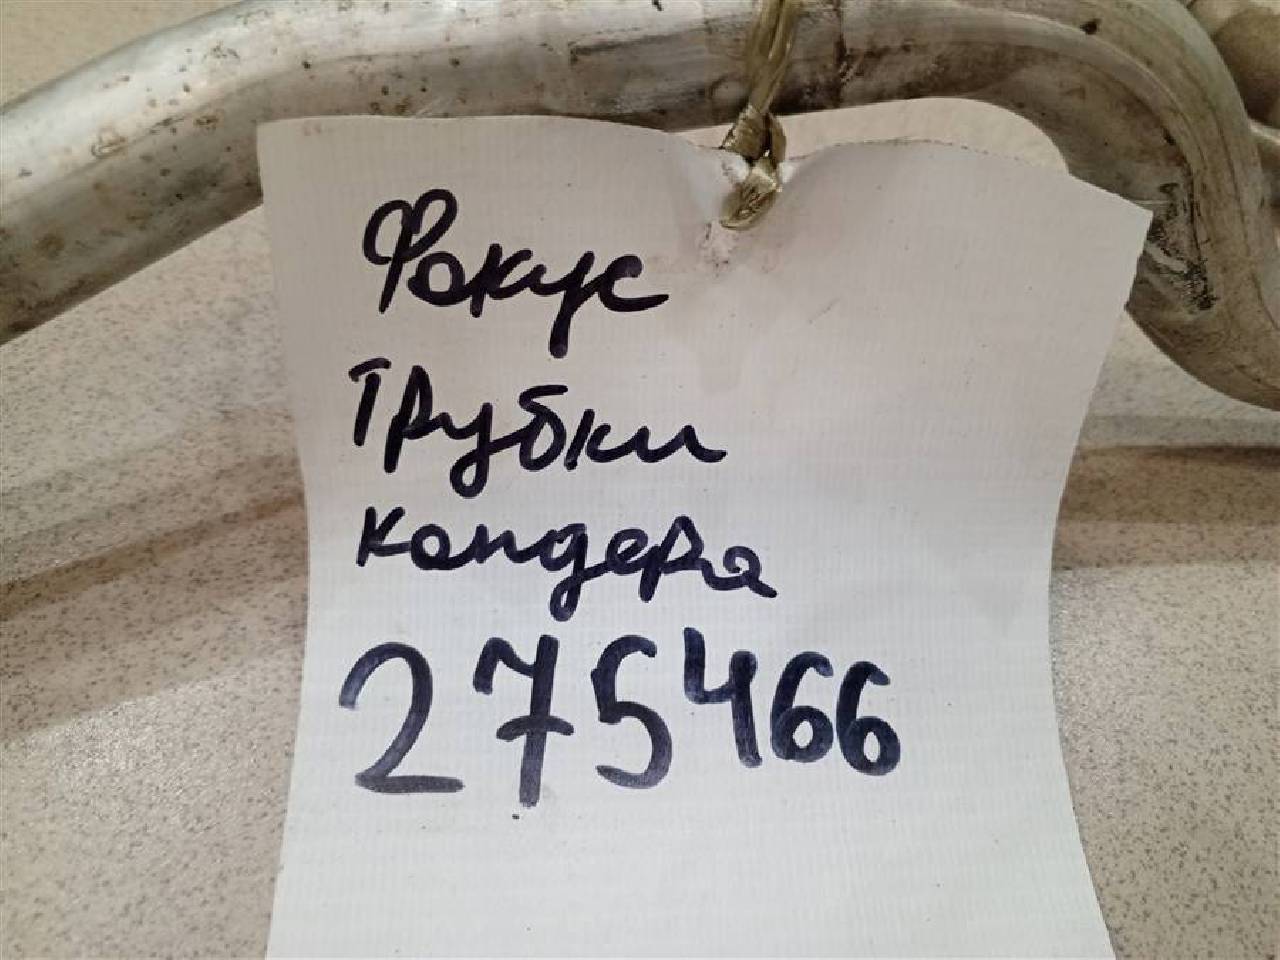 Фокус
Трубки
кондера
275466